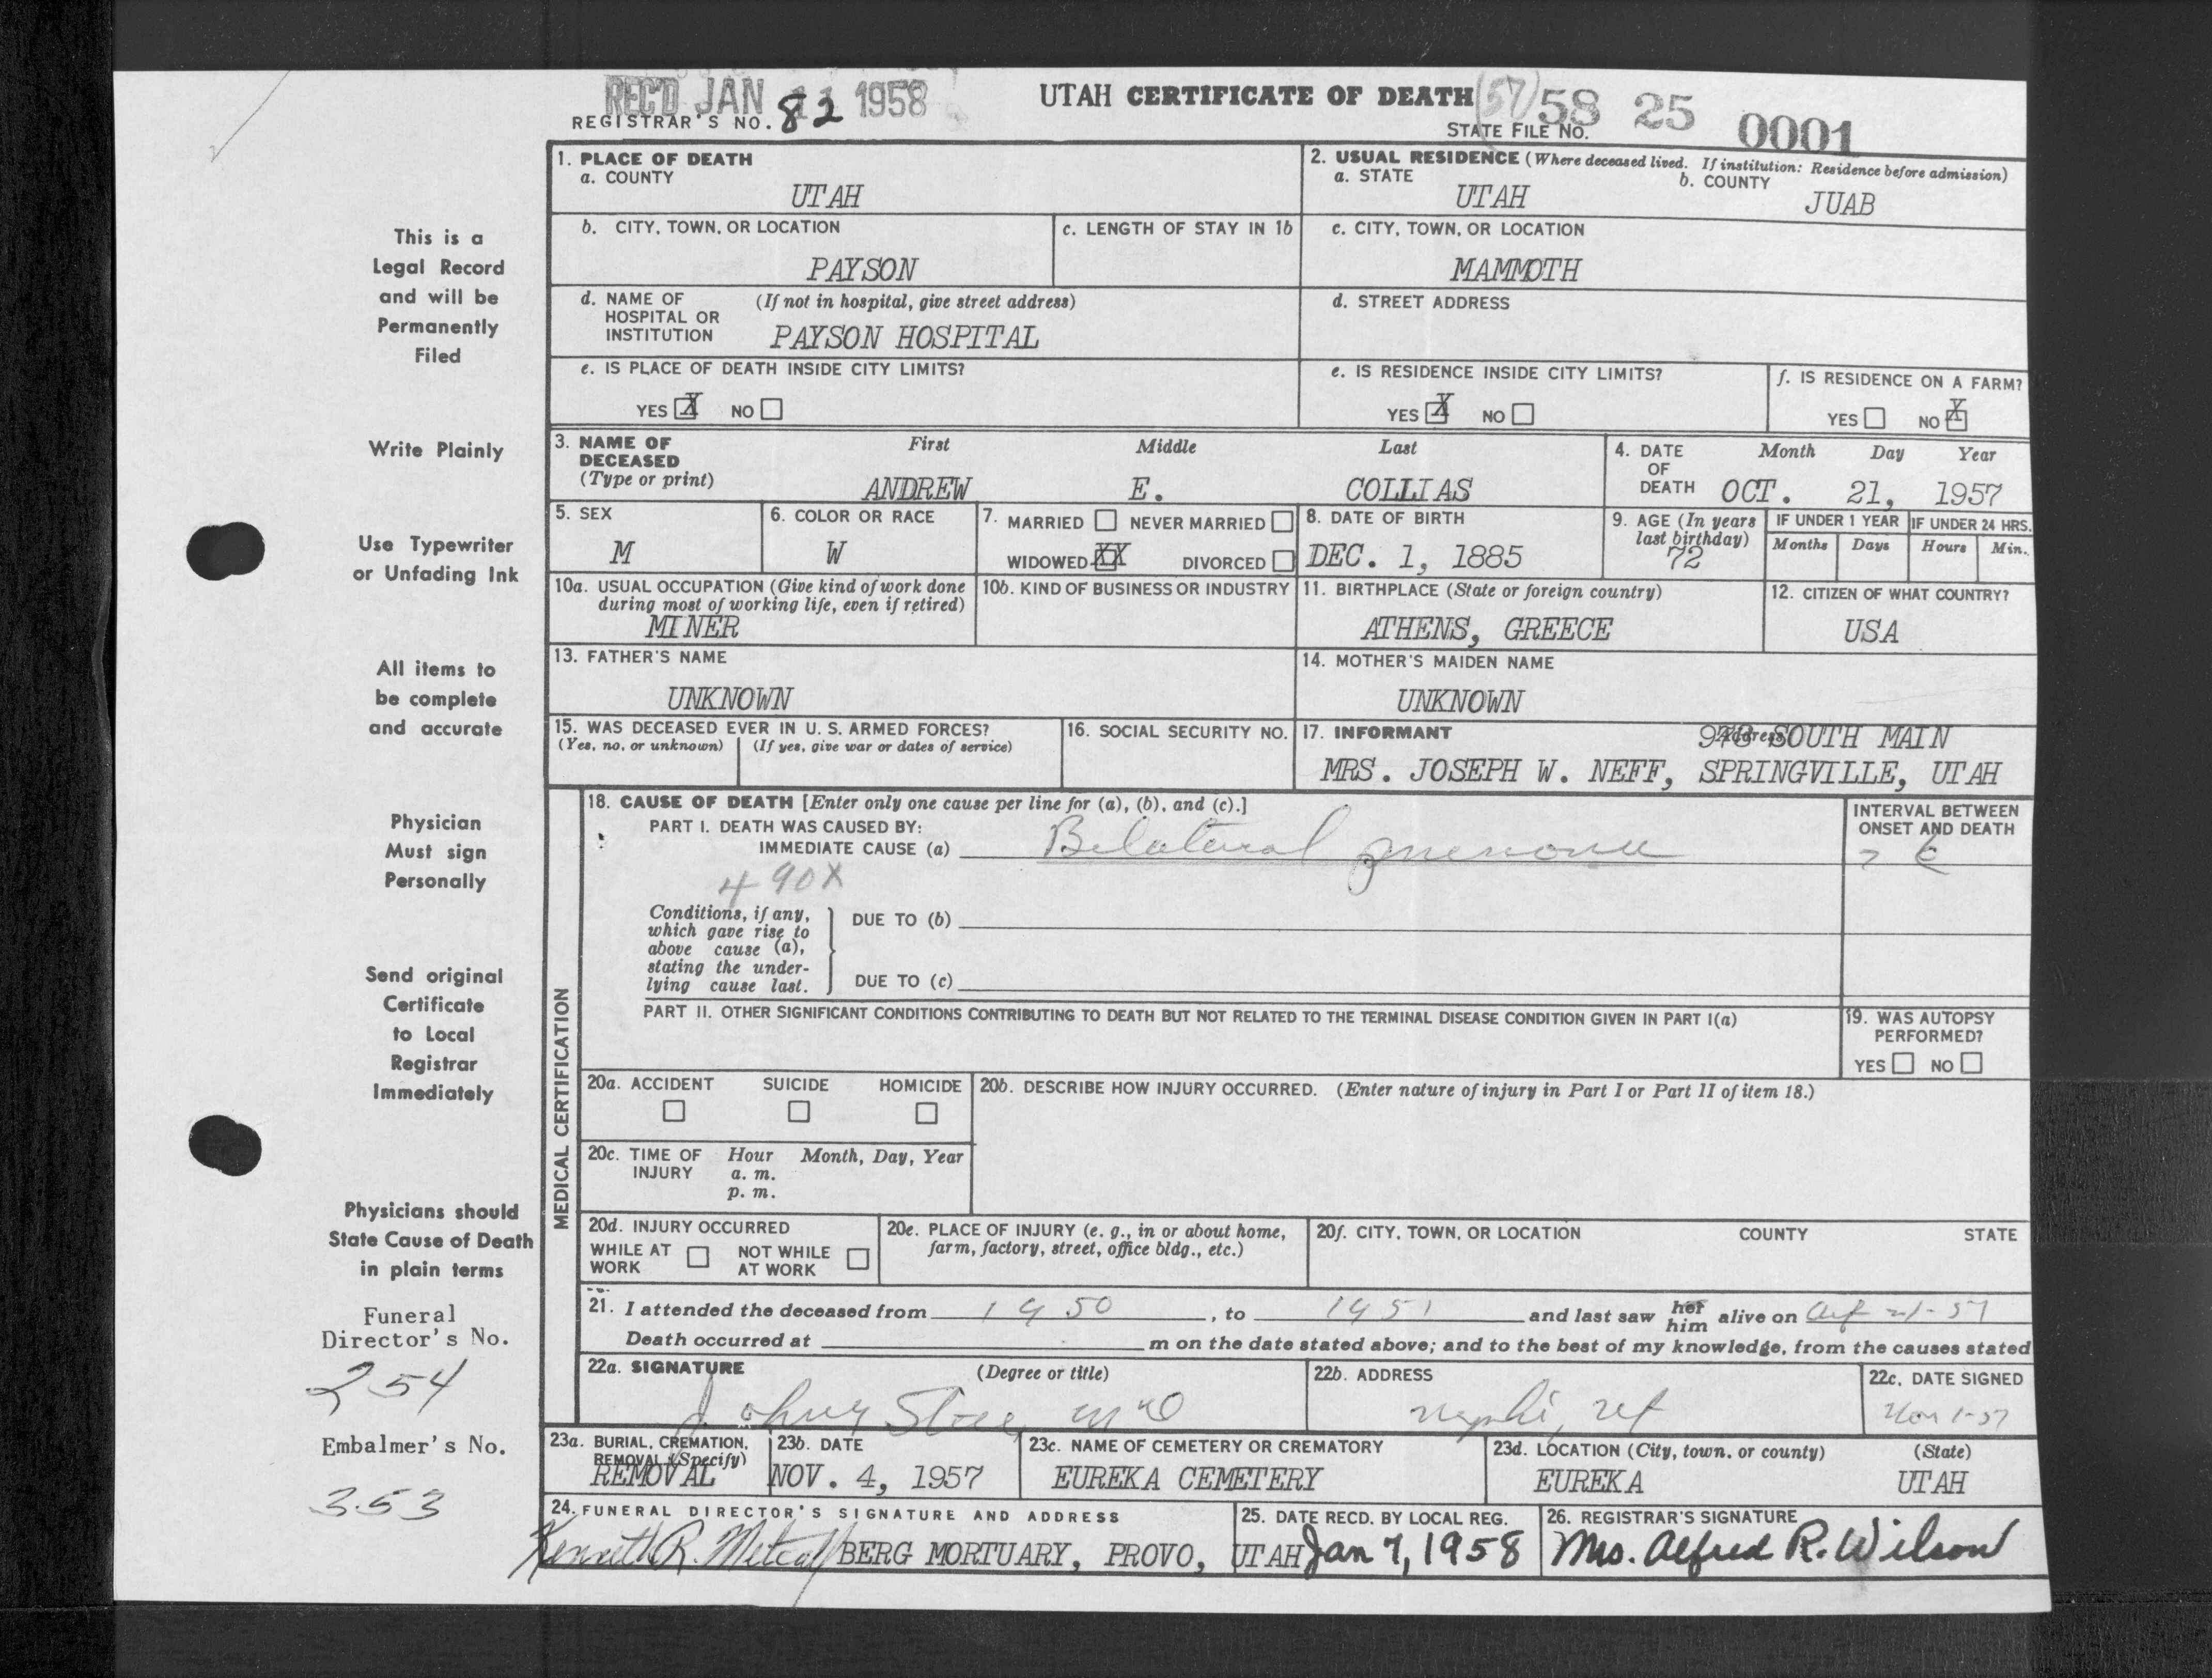 REC'D JAN 11 1958
UTAH CERTIFICATE OF DEATH (57) 58 25 0001
REGISTRAR'S NO. 82
STATE FILE NO.
1. PLACE OF DEATH
a. COUNTY
UTAH
2. USUAL RESIDENCE (Where deceased lived. If institution: Residence before admission)
a. STATE b. COUNTY
UTAH JUAB
b. CITY, TOWN, OR LOCATION
PAYSON
c. LENGTH OF STAY IN 1b
c. CITY, TOWN, OR LOCATION
MAMMOTH
d. NAME OF HOSPITAL OR INSTITUTION (If not in hospital, give street address)
PAYSON HOSPITAL
d. STREET ADDRESS
e. IS PLACE OF DEATH INSIDE CITY LIMITS?
YES X NO
e. IS RESIDENCE INSIDE CITY LIMITS?
YES X NO
f. IS RESIDENCE ON A FARM?
YES NO X
3. NAME OF DECEASED (Type or print)
First Middle Last
ANDREW E. COLLIAS
4. DATE OF DEATH
Month Day Year
OCT. 21, 1957
5. SEX
M
6. COLOR OR RACE
W
7. MARRIED NEVER MARRIED
WIDOWED XX DIVORCED
8. DATE OF BIRTH
DEC. 1, 1885
9. AGE (In years last birthday)
72
IF UNDER 1 YEAR
Months Days
IF UNDER 24 HRS.
Hours Min.
10a. USUAL OCCUPATION (Give kind of work done during most of working life, even if retired)
MINER
10b. KIND OF BUSINESS OR INDUSTRY
11. BIRTHPLACE (State or foreign country)
ATHENS, GREECE
12. CITIZEN OF WHAT COUNTRY?
USA
13. FATHER'S NAME
UNKNOWN
14. MOTHER'S MAIDEN NAME
UNKNOWN
15. WAS DECEASED EVER IN U. S. ARMED FORCES?
(Yes, no, or unknown) (If yes, give war or dates of service)
16. SOCIAL SECURITY NO.
17. INFORMANT Address
978 SOUTH MAIN
MRS. JOSEPH W. NEFF, SPRINGVILLE, UTAH
MEDICAL CERTIFICATION
18. CAUSE OF DEATH [Enter only one cause per line for (a), (b), and (c).]
PART I. DEATH WAS CAUSED BY:
IMMEDIATE CAUSE (a) Bilateral pneumonia
INTERVAL BETWEEN ONSET AND DEATH
490X
Conditions, if any, which gave rise to above cause (a), stating the underlying cause last.
DUE TO (b)
DUE TO (c)
PART II. OTHER SIGNIFICANT CONDITIONS CONTRIBUTING TO DEATH BUT NOT RELATED TO THE TERMINAL DISEASE CONDITION GIVEN IN PART I(a)
19. WAS AUTOPSY PERFORMED?
YES NO
20a. ACCIDENT SUICIDE HOMICIDE
20b. DESCRIBE HOW INJURY OCCURRED. (Enter nature of injury in Part I or Part II of item 18.)
20c. TIME OF INJURY
Hour Month, Day, Year
a. m.
p. m.
20d. INJURY OCCURRED
WHILE AT WORK NOT WHILE AT WORK
20e. PLACE OF INJURY (e. g., in or about home, farm, factory, street, office bldg., etc.)
20f. CITY, TOWN, OR LOCATION COUNTY STATE
21. I attended the deceased from 1950, to 1951 and last saw her him alive on 21-57
Death occurred at m on the date stated above; and to the best of my knowledge, from the causes stated
22a. SIGNATURE (Degree or title)
22b. ADDRESS
Nephi, Ut
22c. DATE SIGNED
Nov 1-57
23a. BURIAL, CREMATION, REMOVAL (Specify)
REMOVAL
23b. DATE
NOV. 4, 1957
23c. NAME OF CEMETERY OR CREMATORY
EUREKA CEMETERY
23d. LOCATION (City, town, or county) (State)
EUREKA UTAH
24. FUNERAL DIRECTOR'S SIGNATURE AND ADDRESS
Kenneth R. Metcalf BERG MORTUARY, PROVO, UTAH
25. DATE RECD. BY LOCAL REG.
Jan 7, 1958
26. REGISTRAR'S SIGNATURE
Mrs. Alfred R. Wilson
This is a
Legal Record
and will be
Permanently
Filed
Write Plainly
Use Typewriter
or Unfading Ink
All items to
be complete
and accurate
Physician
Must sign
Personally
Send original
Certificate
to Local
Registrar
Immediately
Physicians should
State Cause of Death
in plain terms
Funeral
Director's No.
254
Embalmer's No.
353